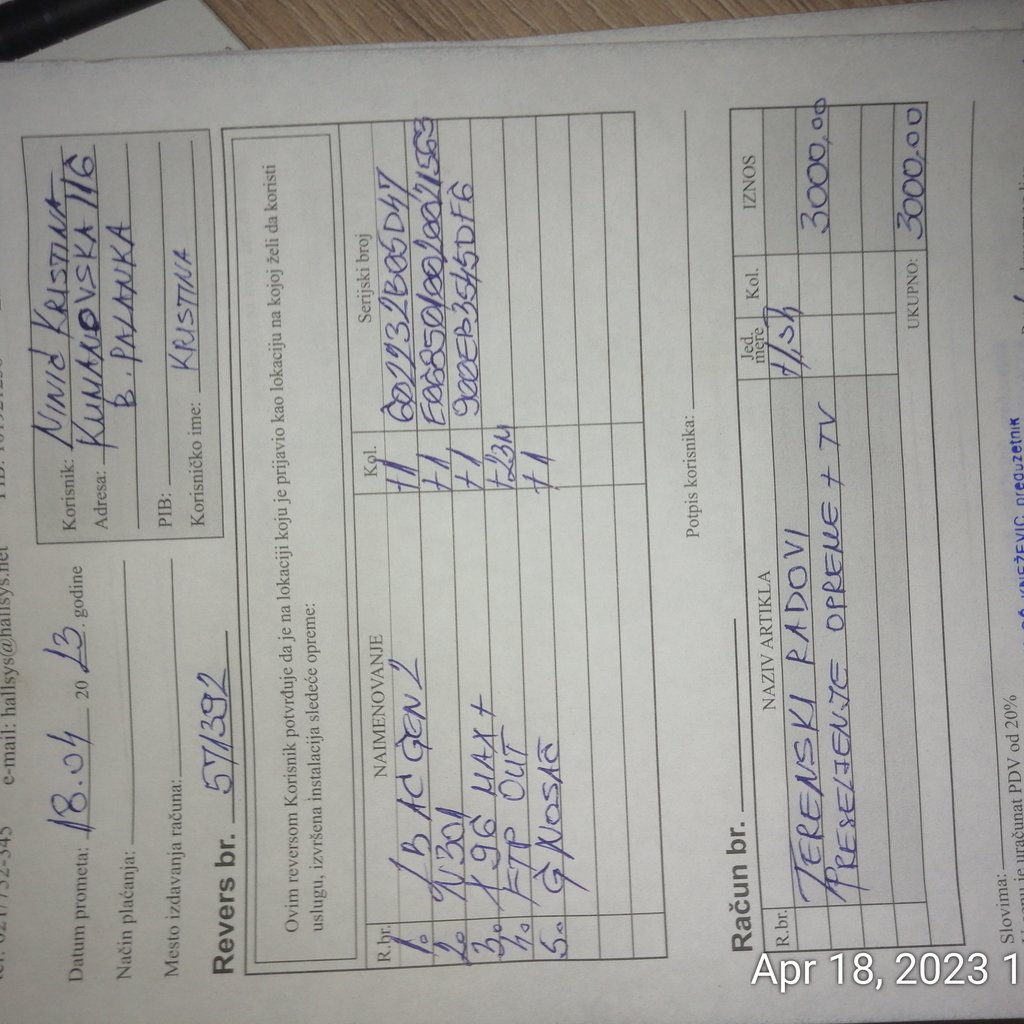 e-mail: hallsys@hallsys.net
Datum prometa: 18.04 2023. godine
Način plaćanja:
Mesto izdavanja računa:
Korisnik: NINIĆ KRISTINA
Adresa: KUMANOVSKA 116
B. PALANKA
PIB:
Korisničko ime: KRISTINA
Revers br. 57/392
Ovim reversom Korisnik potvrđuje da je na lokaciji koju je prijavio kao lokaciju na kojoj želi da koristi
uslugu, izvršena instalacija sledeće opreme:
R.br. NAIMENOVANJE Kol. Serijski broj
1. LB AC GEN2 +1 602232B05D47
2. +1
3. X96 MAX + +1 900EB3545DF6
4. FTP OUT +23M
5. G/NOSAČ +1
Potpis korisnika:
Račun br.
R.br. NAZIV ARTIKLA Jed. mere Kol. IZNOS
TERENSKI RADOVI 3000,00
PRESELJENJE OPREME + TV
UKUPNO: 3000,00
Slovima:
uračunat PDV od 20%
KNEŽEVIĆ preduzetnik
Apr 18, 2023 1